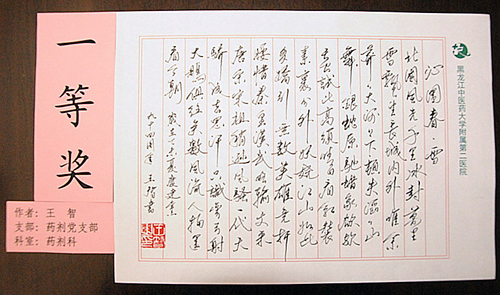 一等奖
作者：王 智
支部：药剂党支部
科室：药剂科
黑龙江中医药大学附属第二医院
沁园春·雪
北国风光千里冰封万里
雪飘望长城内外唯余
莽莽大河上下顿失滔滔山
舞银蛇原驰蜡象欲与
天公试比高须晴日看红装
素裹分外妖娆江山如此
多娇引无数英雄竞折
腰惜秦皇汉武略输文采
唐宗宋祖稍逊风骚一代天
骄成吉思汗只识弯弓射
大雕俱往矣数风流人物还
看今朝
夏庆建党
九十四周年 王智书